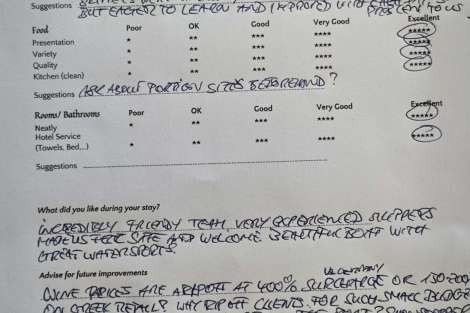 Suggestions
BUT EAGER TO LEARN AND IMPROVED WITH
Food Poor OK Good Very Good Excellent
Presentation * ** *** **** *****
Variety * ** *** **** *****
Quality * ** *** **** *****
Kitchen (clean) * ** *** **** *****
Suggestions ASK ABOUT PORTION SIZES BEFOREHAND?
Rooms/ Bathrooms Poor OK Good Very Good Excellent
Neatly * ** *** **** *****
Hotel Service
(Towels, Bed...) * ** *** **** *****
Suggestions
What did you like during your stay?
INCREDIBLY FRIENDLY TEAM, VERY EXPERIENCED SKIPPERS
MADE US FEEL SAFE AND WELCOME BEAUTIFUL BOAT WITH
GREAT WATERSPORTS.
Advise for future improvements
WINE PRICES ARE AT 400% SURCHARGE OR 150-200
ON GREEK RETAIL? WHY RIP OFF CLIENTS FOR SUCH SMALL